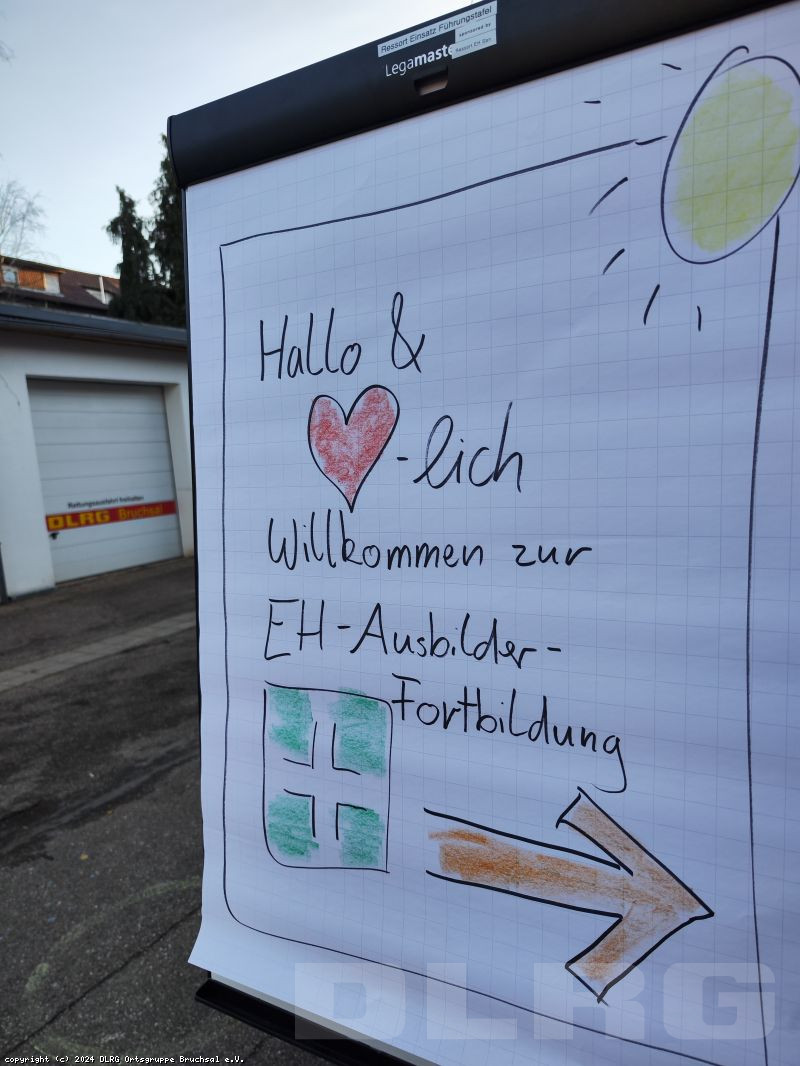 Ressort Einsatz Führungstafel
sponsored by
Ressort EH San
Legamaster
Hallo &
-lich
Willkommen zur
EH-Ausbilder-
Fortbildung
Rettungsausfahrt freihalten
DLRG Bruchsal
DLRG
copyright (c) 2024 DLRG Ortsgruppe Bruchsal e.V.